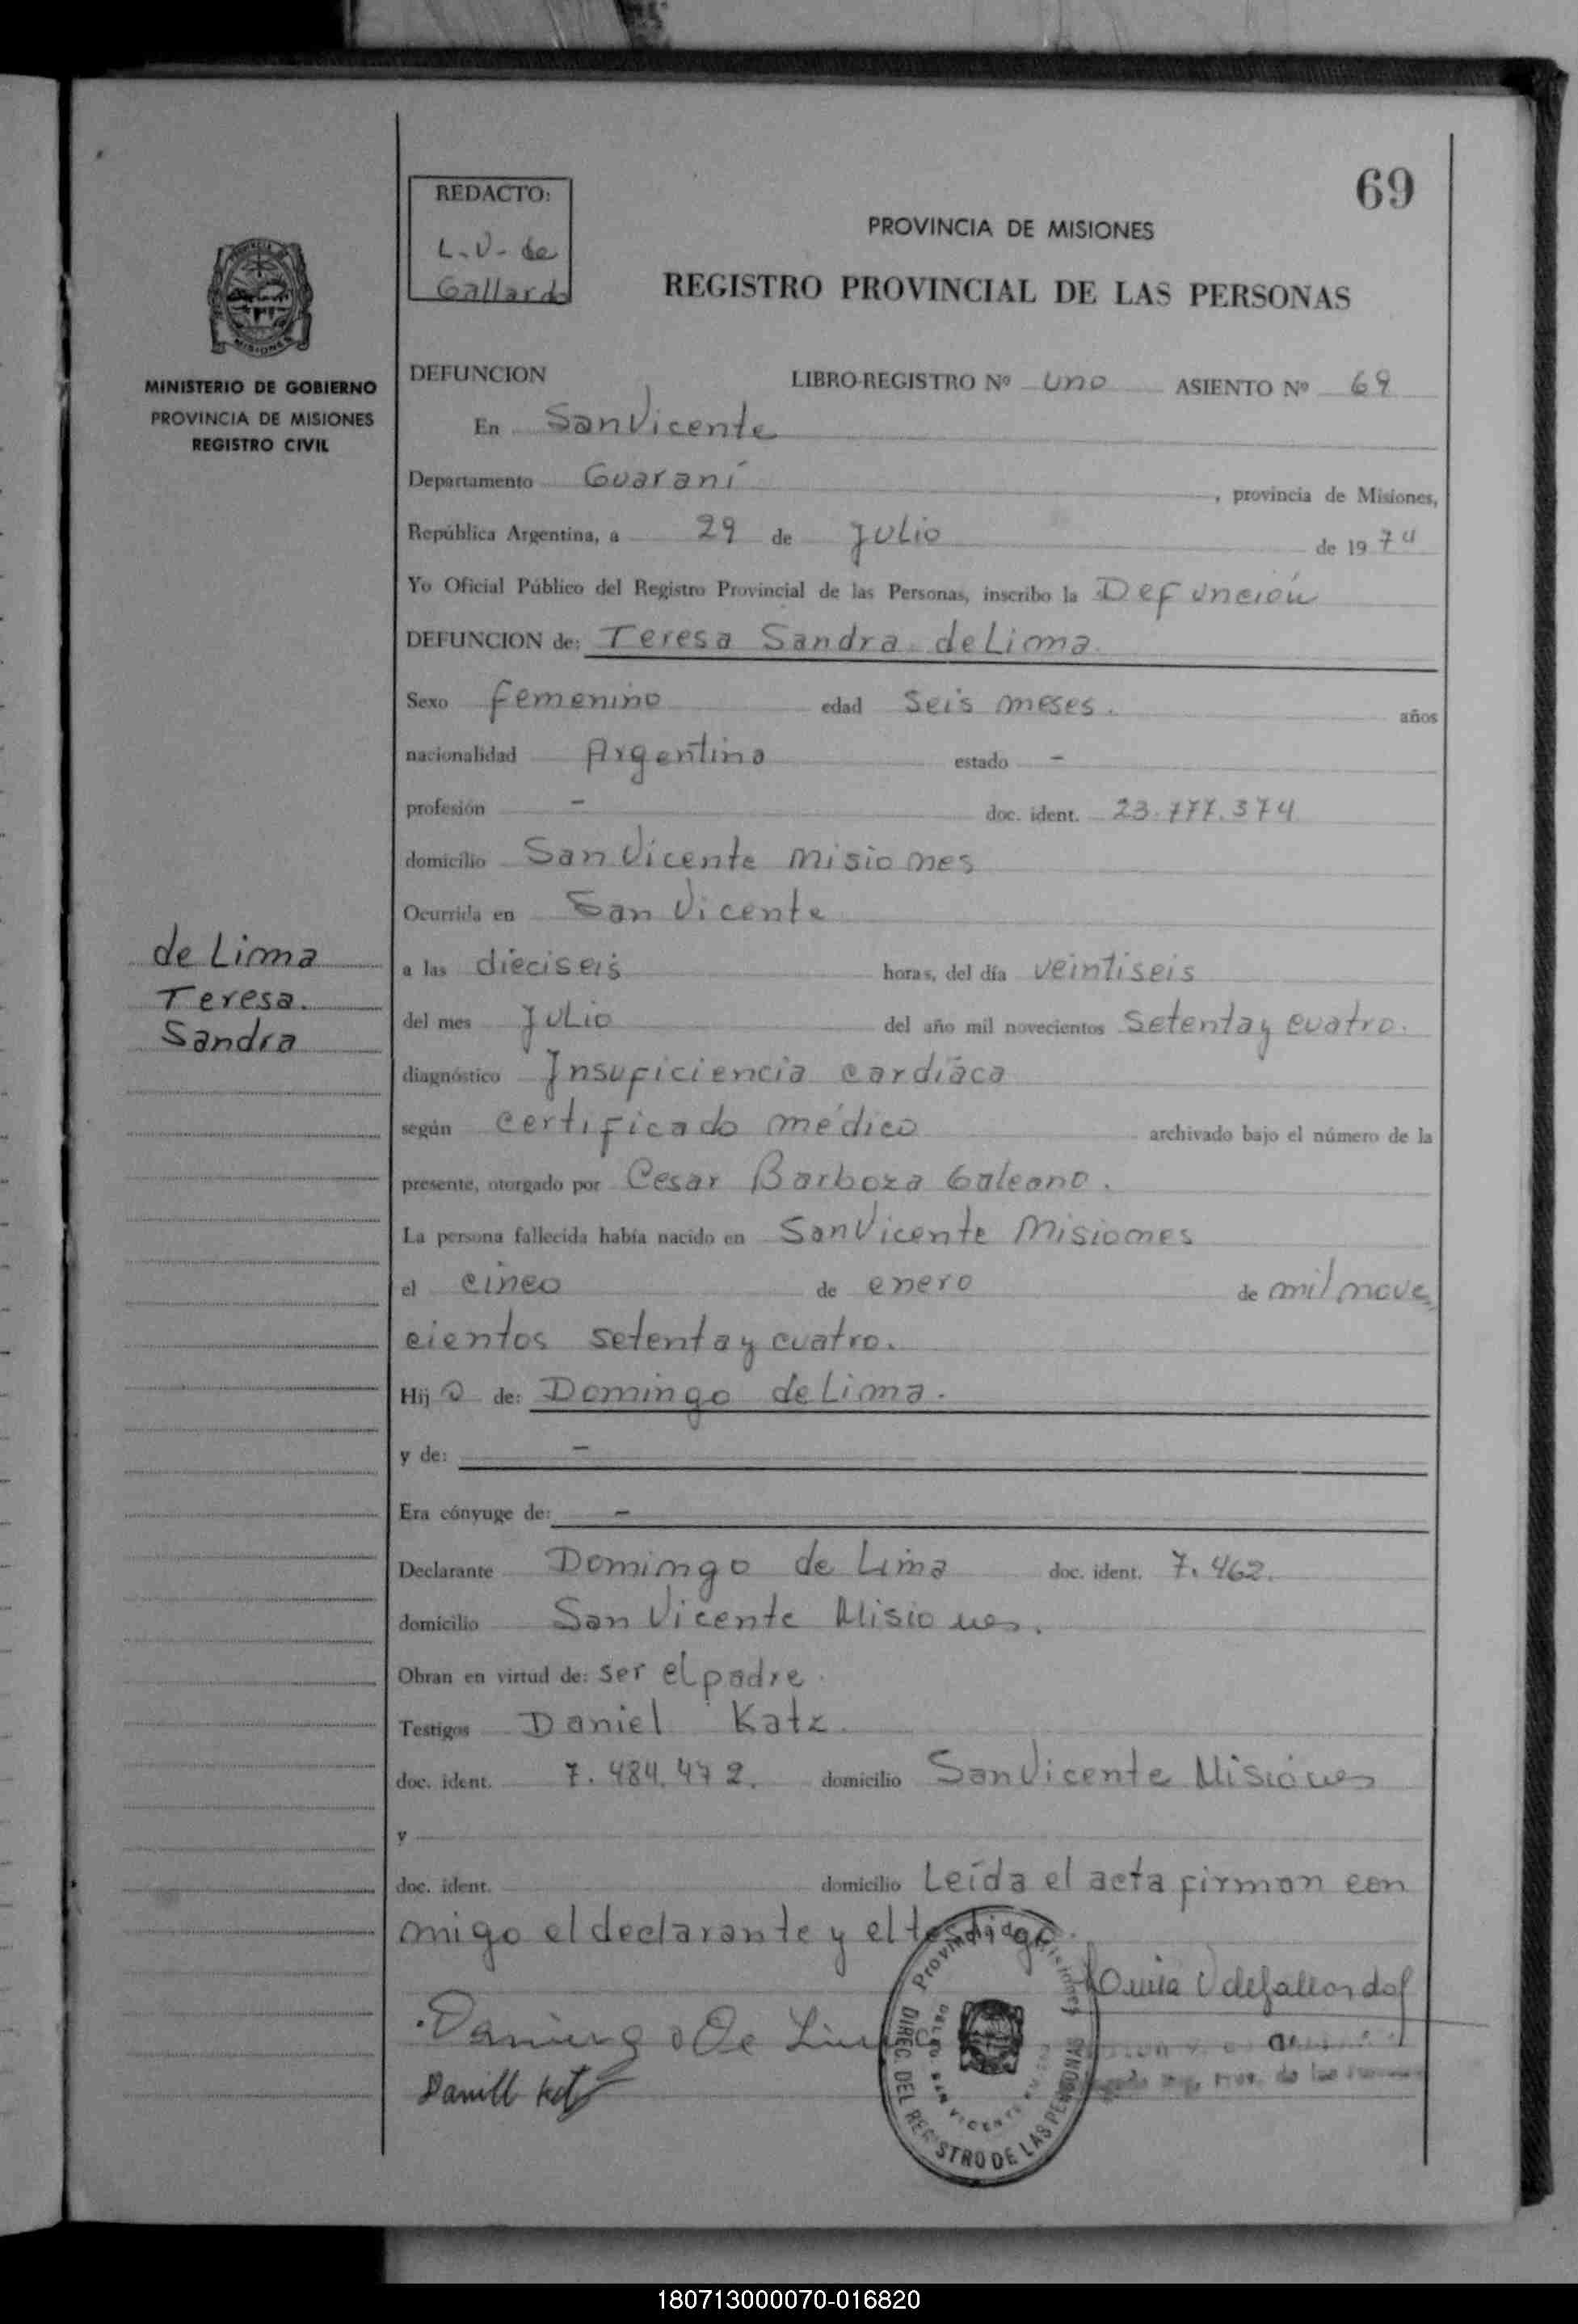 69
REDACTO:
L.V. de
Gallardo
PROVINCIA DE MISIONES
REGISTRO PROVINCIAL DE LAS PERSONAS
MISIONES
MINISTERIO DE GOBIERNO
PROVINCIA DE MISIONES
REGISTRO CIVIL
DEFUNCION LIBRO-REGISTRO Nº uno ASIENTO Nº 69
En San Vicente
Departamento Guaraní , provincia de Misiones,
República Argentina, a 29 de Julio de 1974
Yo Oficial Público del Registro Provincial de las Personas, inscribo la Defunción
DEFUNCION de: Teresa Sandra de Lima.
Sexo femenino edad seis meses. años
nacionalidad Argentina estado -
profesión - doc. ident. 23.777.374
domicilio San Vicente Misiones
Ocurrida en San Vicente
a las dieciseis horas, del día veintiseis
del mes Julio del año mil novecientos setenta y cuatro.
diagnóstico Insuficiencia cardíaca
según certificado médico archivado bajo el número de la
presente, otorgado por Cesar Barboza Galeano.
La persona fallecida había nacido en San Vicente Misiones
el cinco de enero de mil nove
cientos setenta y cuatro.
Hija de: Domingo de Lima.
y de: -
Era cónyuge de: -
Declarante Domingo de Lima doc. ident. 7.462.
domicilio San Vicente Misiones.
Obran en virtud de: ser el padre.
Testigos Daniel Katz.
doc. ident. 7.484.472. domicilio San Vicente Misiones
y
doc. ident. domicilio Leída el acta firman con
migo el declarante y el testigo.
de Lima
Teresa.
Sandra
Domingo De Lima
Provincia de Misiones
DIREC. DEL REGISTRO DE LAS PERSONAS
SAN VICENTE
180713000070-016820